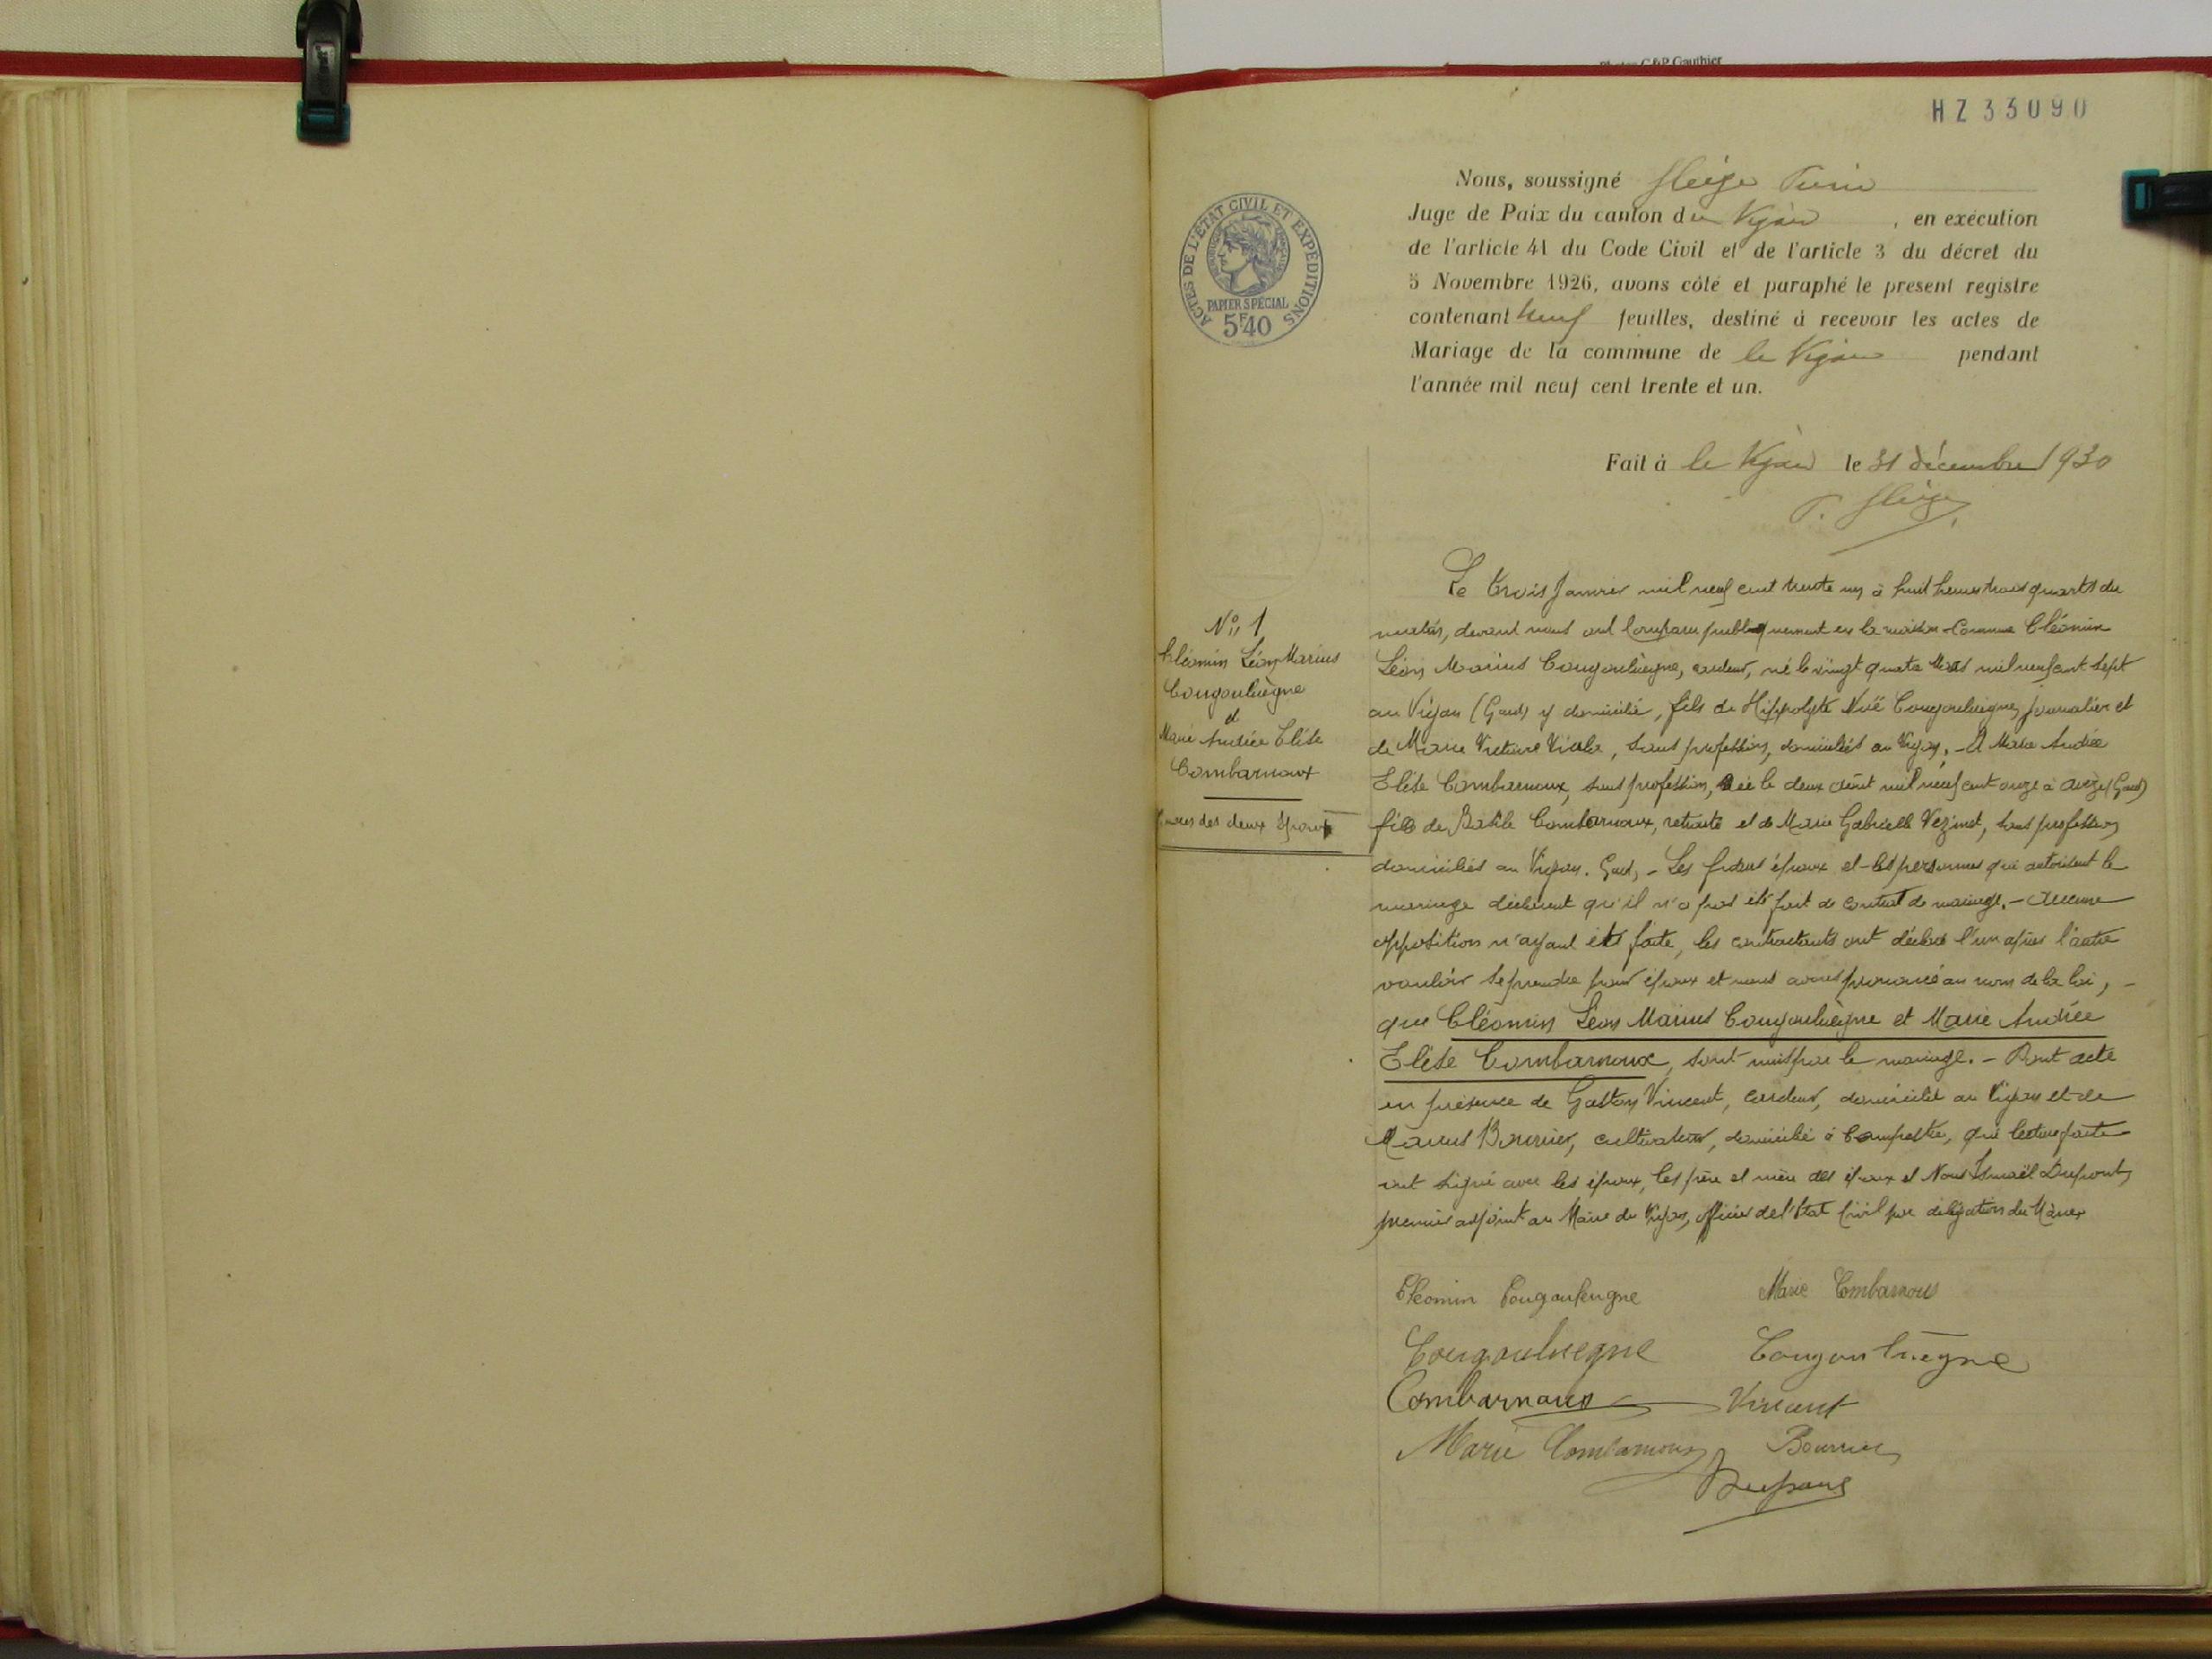 Photos G&P Gauthier
HZ 33090
Nous, soussigné
Juge de Paix du canton du Vigan, en exécution
de l'article 41 du Code Civil et de l'article 3 du décret du
5 Novembre 1926, avons côté et paraphé le present registre
contenant neuf feuilles, destiné à recevoir les actes de
Mariage de la commune de le Vigan pendant
l'année mil neuf cent trente et un.
ACTES DE L'ÉTAT CIVIL ET EXPÉDITIONS
PAPIER SPÉCIAL
5F40
Fait à le Vigan le 31 décembre 1930
N° 1
Cléonin Léon Marius
Cougouluègne
et
Marie Andrée Elise
Combarnoux
des deux époux
Le trois Janvier mil neuf cent trente un à huit heures trois quarts du
matin, devant nous ont comparu publiquement en la maison Commune Cléonin
Léon Marius Cougouluègne, cardeur, né le vingt quatre Mars mil neuf cent sept
au Vigan (Gard) y domicilié, fils de Hippolyte Noë Cougouluègne, journalier et
de Marie Victoire Viala, sans profession, domiciliés au Vigan, - Et Marie Andrée
Elise Combarnoux, sans profession, née le deux août mil neuf cent onze à Avèze (Gard)
fille de Basile Combarnoux, retraité et de Marie Gabrielle Vézinet, sans profession
domiciliés au Vigan. Gard, - Les futurs époux et les personnes qui autorisent le
mariage déclarent qu'il n'a pas été fait de contrat de mariage. - Aucune
opposition n'ayant été faite, les contractants ont déclaré l'un après l'autre
vouloir se prendre pour époux et nous avons prononcé au nom de la loi, -
que Cléonin Léon Marius Cougouluègne et Marie Andrée
Elise Combarnoux, sont unis par le mariage. - Dont acte
en présence de Gaston Vincent, cardeur, domicilié au Vigan et de
Marius Bourrier, cultivateur, domicilié à Campestre, qui lecture faite
ont signé avec les époux, les père et mère des époux et Nous Ismaël Dupont,
premier adjoint au Maire du Vigan, officier de l'Etat Civil par délégation du Maire
Cléonin Cougouluegne Marie Combarnous
Cougouluegne Cougouluègne
Combarnoux Vincent
Marie Combarnoux Bourrier
Dupont